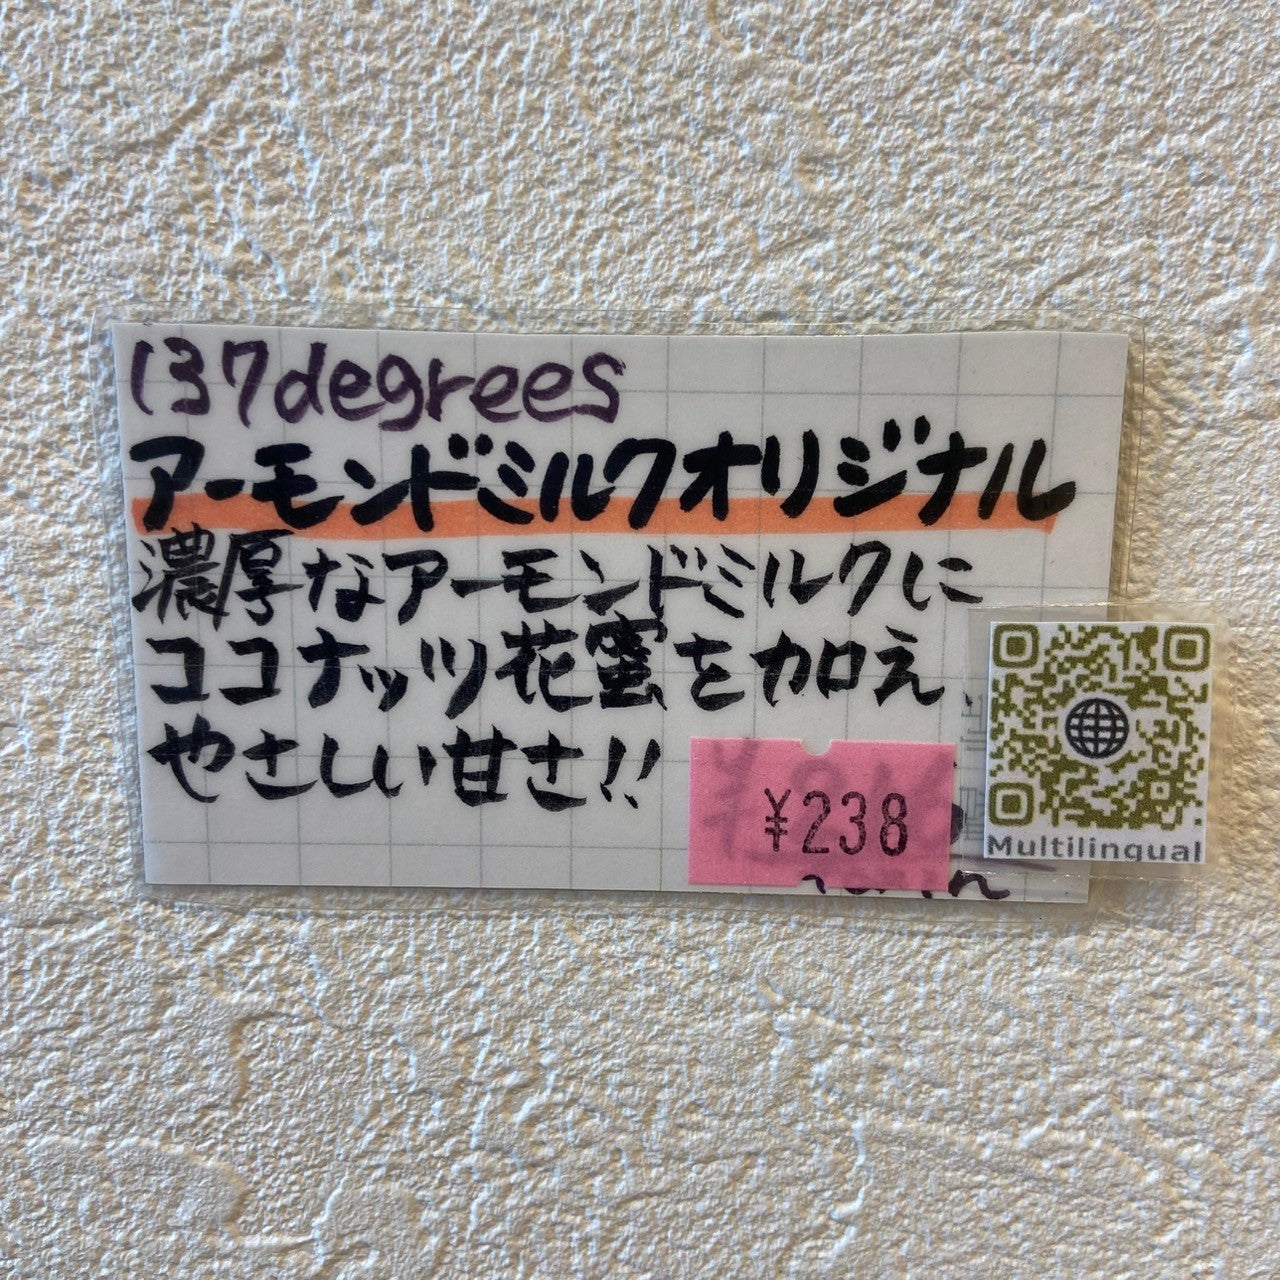 137degrees
アーモンドミルクオリジナル
濃厚なアーモンドミルクに
ココナッツ花蜜を加え
やさしい甘さ!!
¥238
Multilingual